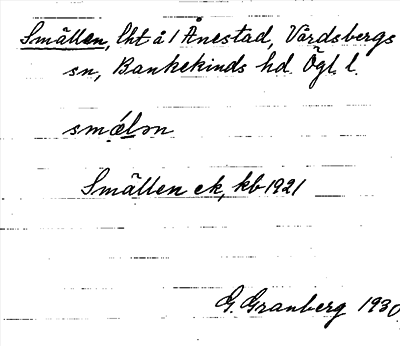 Smällen, lht å 1 Ånestad, Vårdsbergs
sn, Bankekinds hd. Ögl. l.
smǽlən
Smällen ek, kb 1921
G. Granberg 1930.